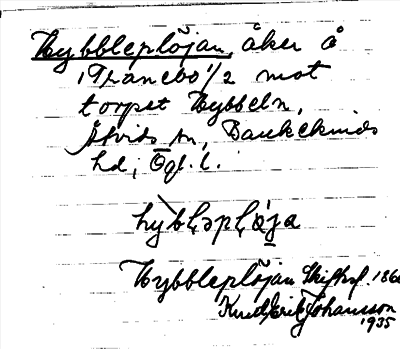 Hybbleplöjan, åker å
Tranebo 1/2 mot
torpet Hybbeln,
Åtvids sn, Bankekinds
hd, Ögl. l.
hybḷəpḷö̀ja
Hybbleplöjan Skiftesf.
Knut Erik Johansson
1935